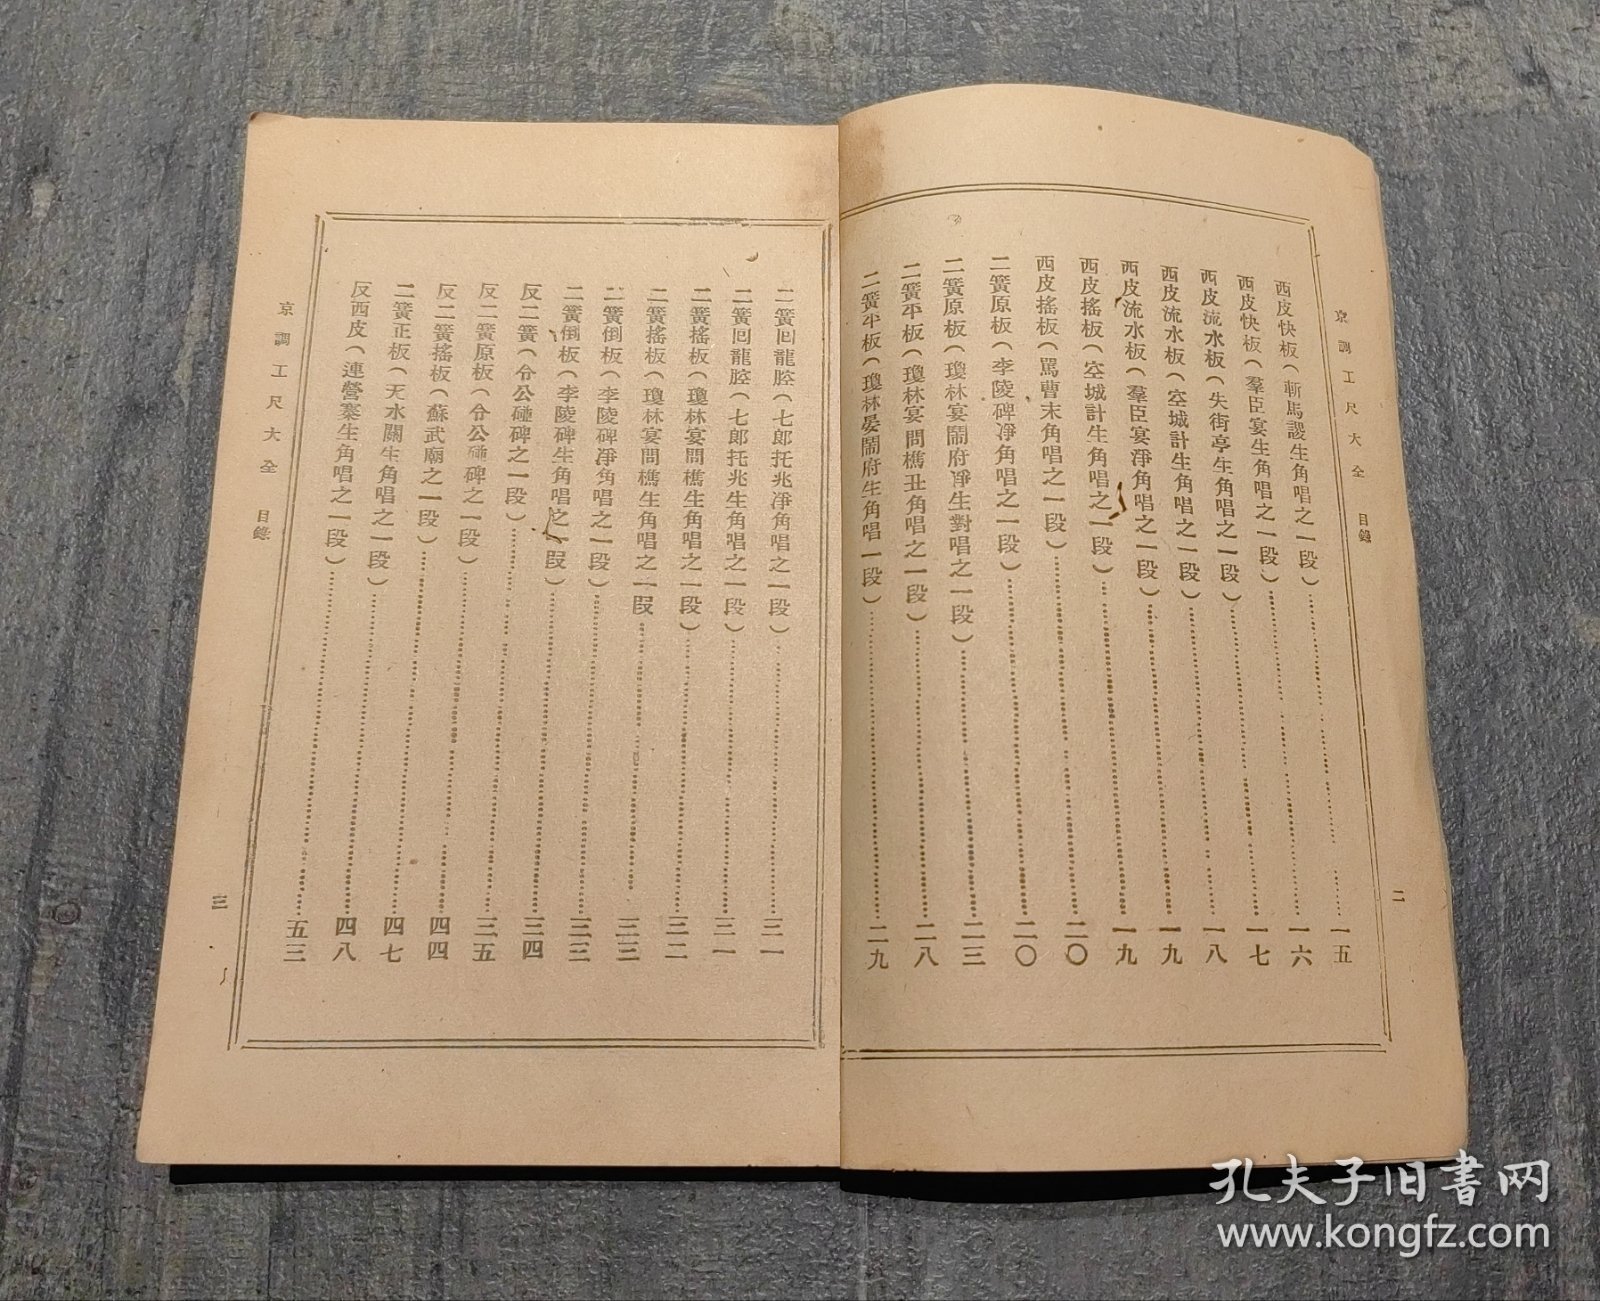 京調工尺大全　目錄　二
西皮快板（斬馬謖生角唱之一段）……一五
西皮快板（羣臣宴生角唱之一段）……一六
西皮流水板（失街亭生角唱之一段）……一七
西皮流水板（空城計生角唱之一段）……一八
西皮流水板（羣臣宴淨角唱之一段）……一九
西皮搖板（空城計生角唱之一段）……一九
西皮搖板（罵曹末角唱之一段）……二〇
二簧原板（李陵碑淨角唱之一段）……二〇
二簧原板（瓊林宴鬧府淨生對唱之一段）……二三
二簧平板（瓊林宴問樵丑角唱之一段）……二八
二簧平板（瓊林宴鬧府生角唱一段）……二九
二簧回龍腔（七郎托兆淨角唱之一段）……三一
二簧回龍腔（七郎托兆生角唱之一段）……三一
二簧搖板（瓊林宴問樵生角唱之一段）……三二
二簧搖板（瓊林宴問樵生角唱之一段……三三
二簧倒板（李陵碑淨角唱之一段）……三三
二簧倒板（李陵碑生角唱之一段）……三四
反二簧（令公碰碑之一段）……三五
反二簧原板（令公碰碑之一段）……四四
反二簧搖板（蘇武廟之一段）……四七
二簧正板（天水關生角唱之一段）……四八
反西皮（連營寨生角唱之一段）……五三
京調工尺大全　目錄　三
孔夫子旧書网
www.kongfz.com